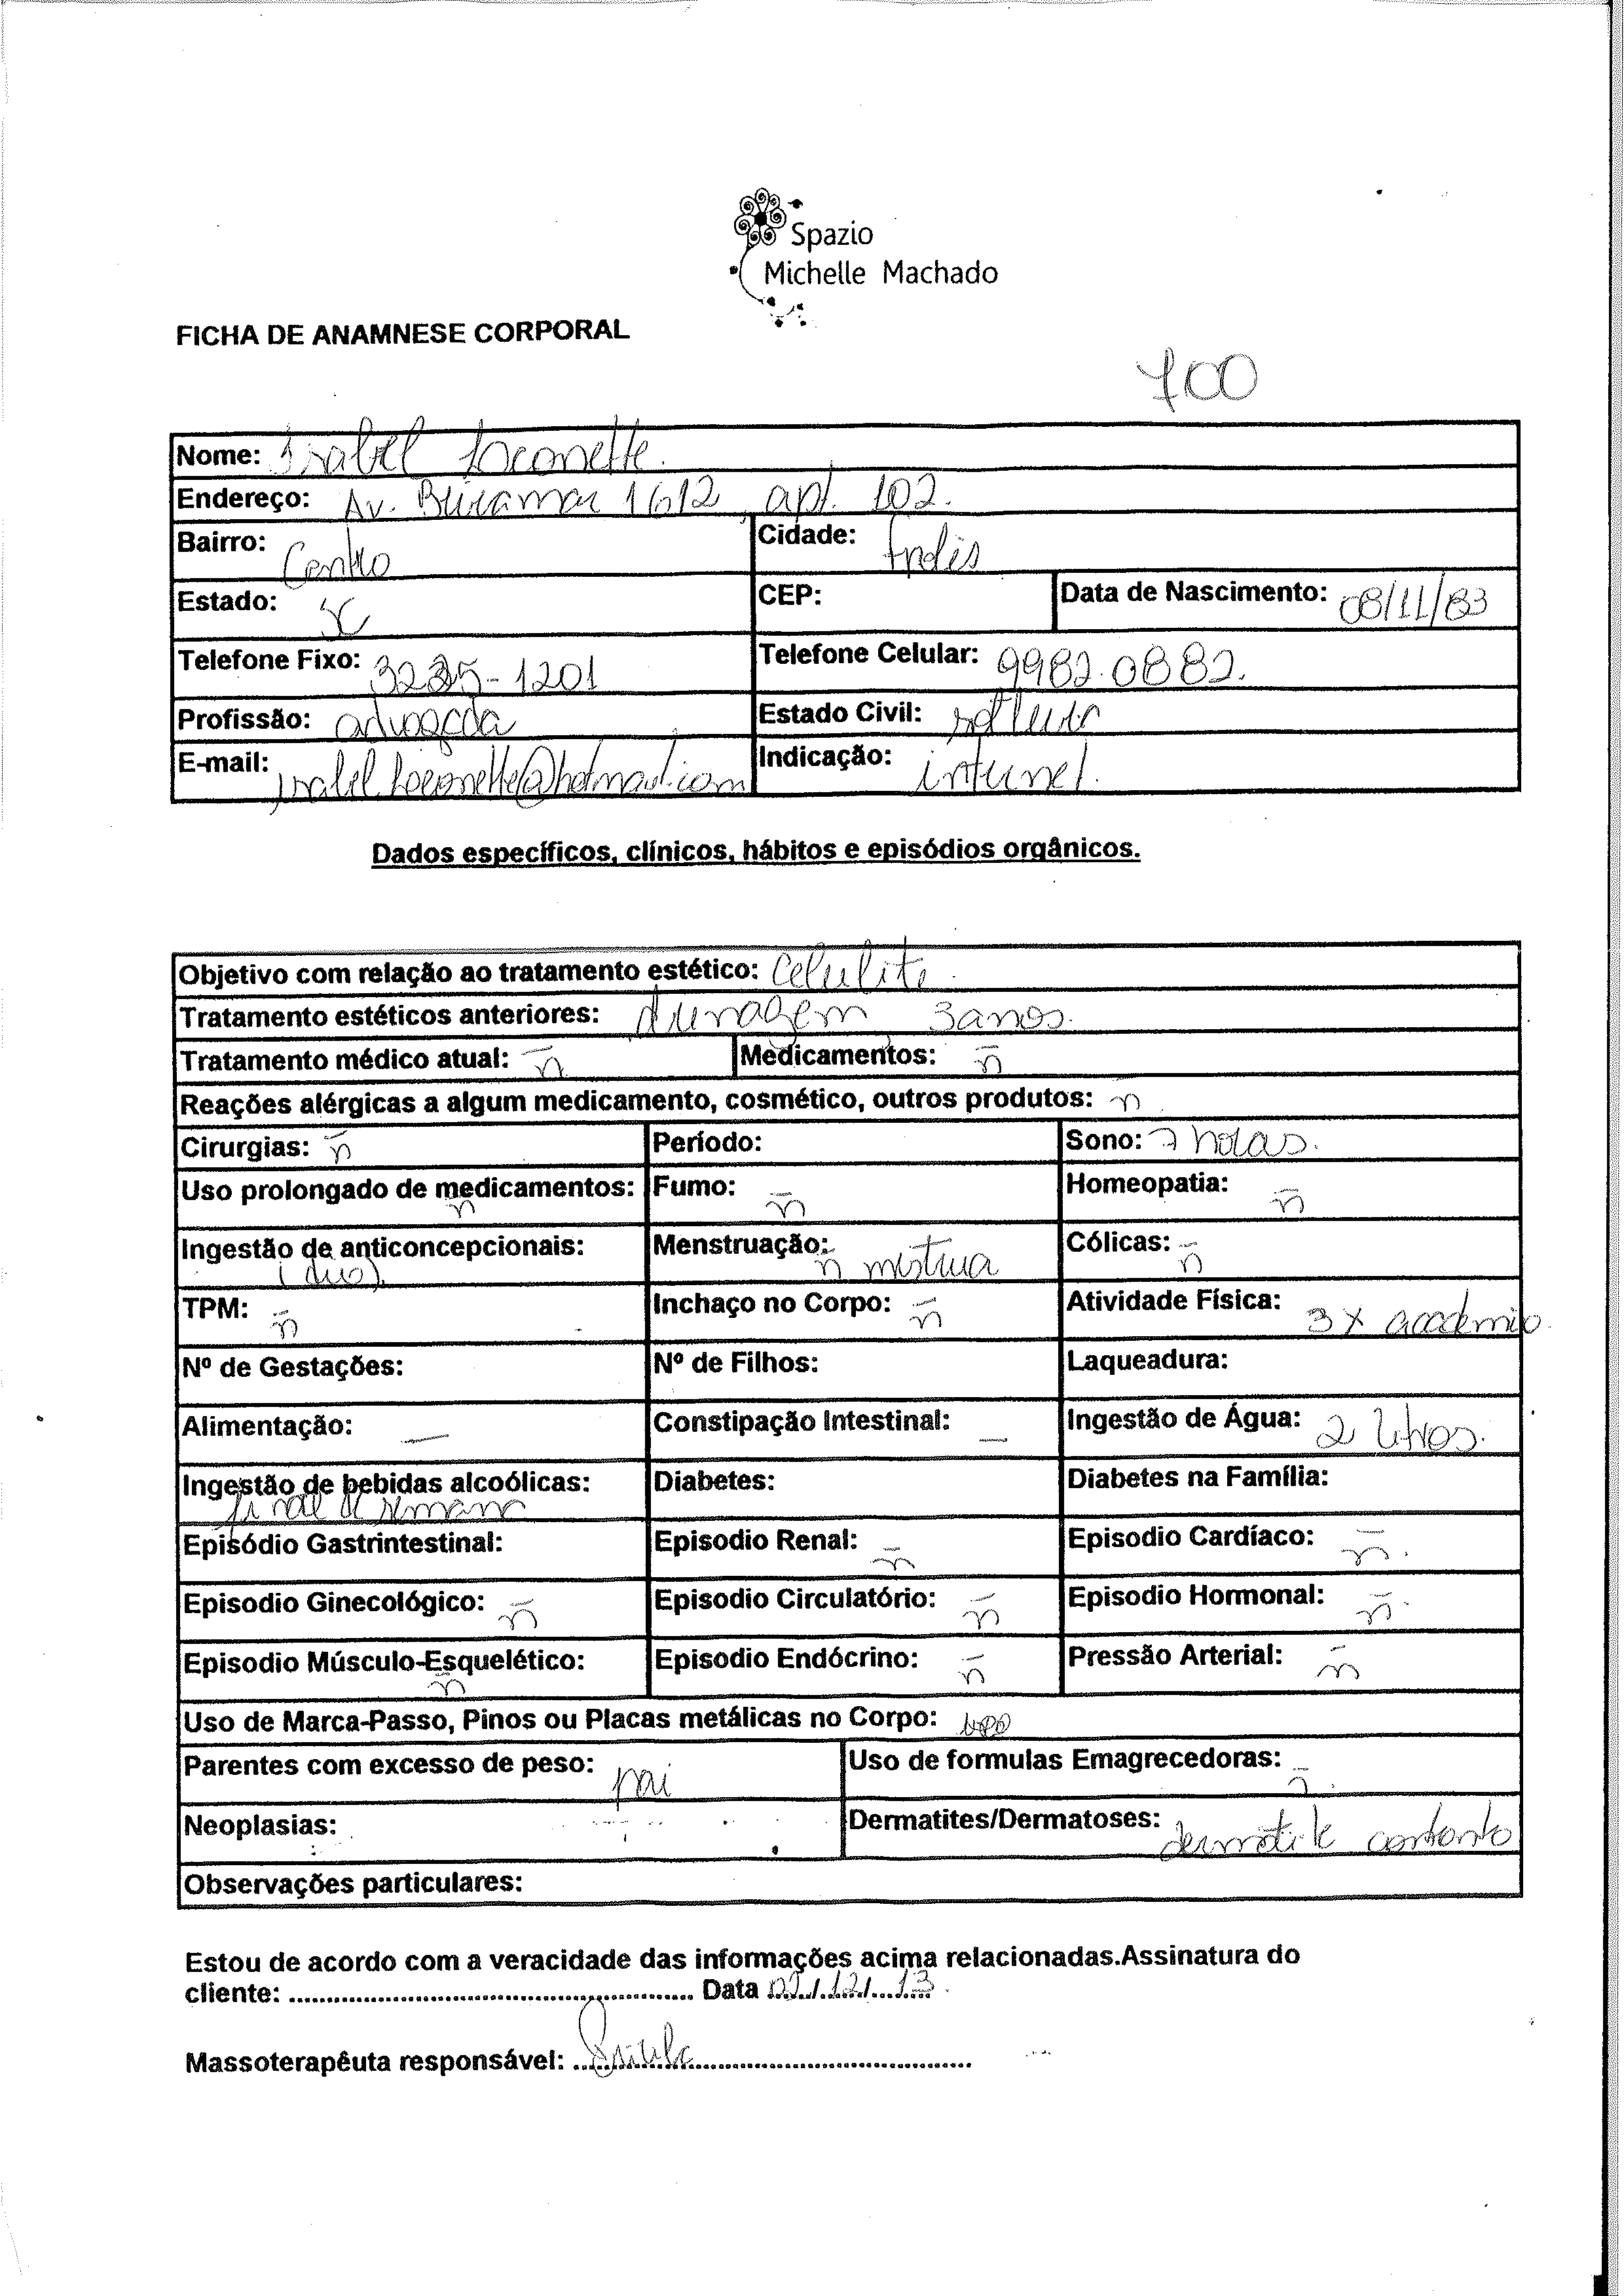 Spazio
Michelle Machado
FICHA DE ANAMNESE CORPORAL
700
Nome: Isabel
Endereço: Av. Beiramar 1612 apt. 102.
Bairro: Centro Cidade: Fpolis
Estado: SC CEP: Data de Nascimento: 08/11/83
Telefone Fixo: 3225-1201 Telefone Celular: 9982.0882.
Profissão: advogada Estado Civil: solteira
E-mail: Indicação: internet.
Dados específicos, clínicos, hábitos e episódios orgânicos.
Objetivo com relação ao tratamento estético: Celulite.
Tratamento estéticos anteriores: drenagem 3 anos.
Tratamento médico atual: ñ Medicamentos: ñ
Reações alérgicas a algum medicamento, cosmético, outros produtos: ñ
Cirurgias: ñ Período: Sono: 7 horas.
Uso prolongado de medicamentos: ñ Fumo: ñ Homeopatia: ñ
Ingestão de anticoncepcionais: (diu) Menstruação: ñ mestrua Cólicas: ñ
TPM: ñ Inchaço no Corpo: ñ Atividade Física: 3x academia
Nº de Gestações: Nº de Filhos: Laqueadura:
Alimentação: — Constipação Intestinal: — Ingestão de Água: 2 litros.
Ingestão de bebidas alcoólicas: final de semana Diabetes: Diabetes na Família:
Episódio Gastrintestinal: Episodio Renal: ñ Episodio Cardíaco: ñ.
Episodio Ginecológico: ñ Episodio Circulatório: ñ Episodio Hormonal: ñ.
Episodio Músculo-Esquelético: ñ Episodio Endócrino: ñ Pressão Arterial: ñ
Uso de Marca-Passo, Pinos ou Placas metálicas no Corpo:
Parentes com excesso de peso: pai Uso de formulas Emagrecedoras: ñ.
Neoplasias: Dermatites/Dermatoses: dermatite contanto
Observações particulares:
Estou de acordo com a veracidade das informações acima relacionadas.Assinatura do
cliente: ........ Data /12/13
Massoterapêuta responsável: ........